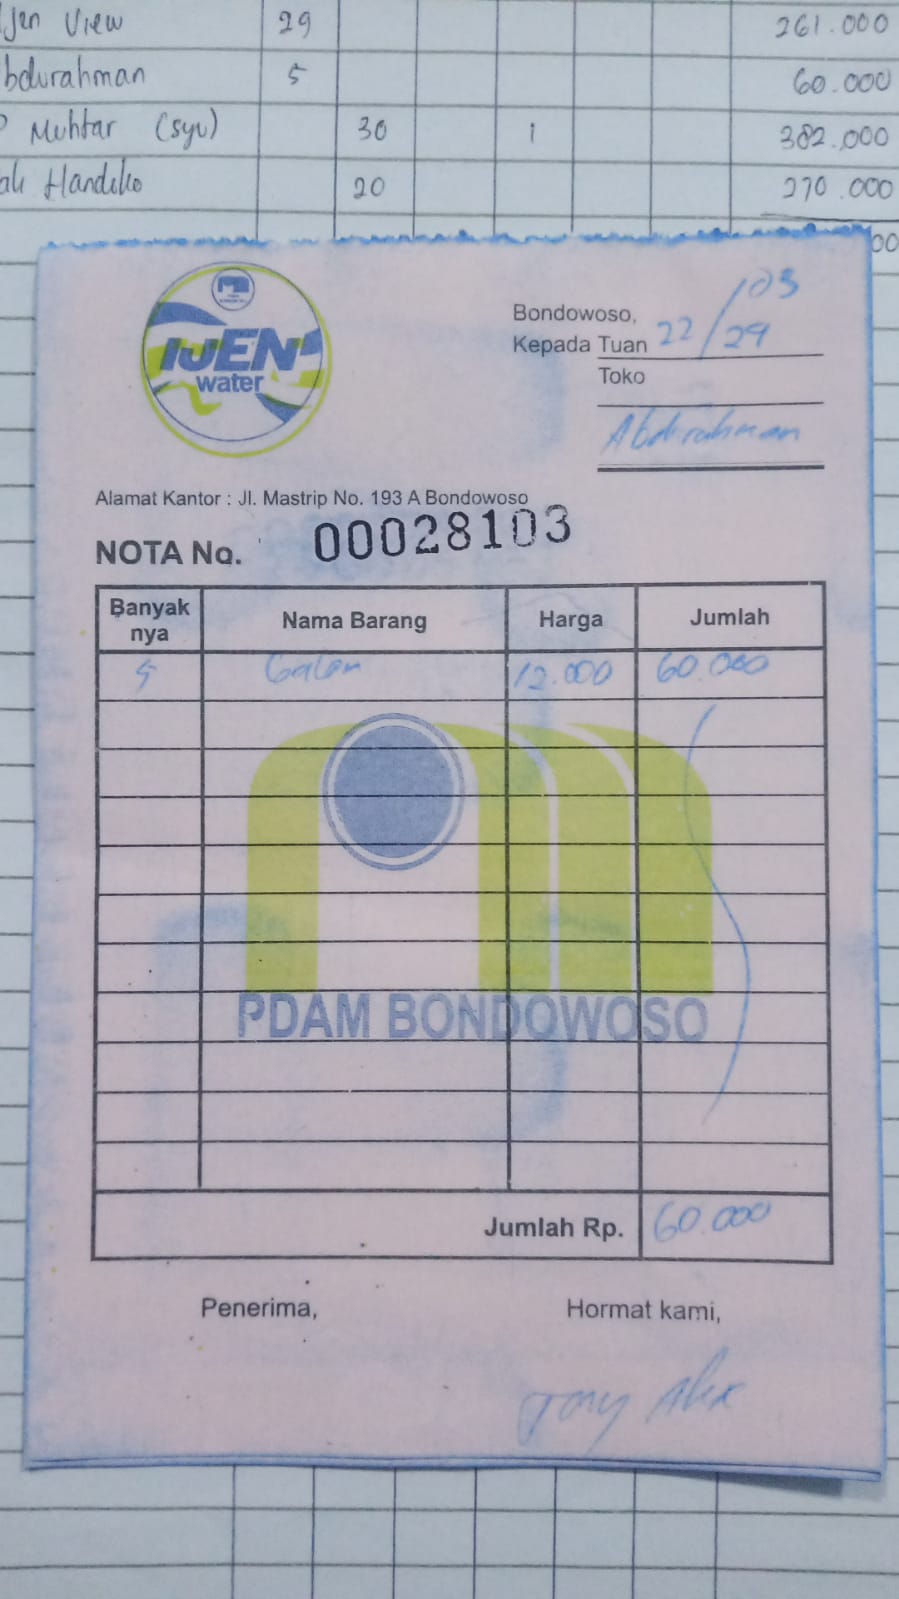 Ijen View 29 261.000
bdurahman 5 60.000
P Muhtar (syu) 30 1 382.000
ak Handiko 20 270.000
00
IJEN
water
Bondowoso, 22/03/24
Kepada Tuan
Toko
Abdurahman
Alamat Kantor : Jl. Mastrip No. 193 A Bondowoso
NOTA No. 00028103
Banyak nya Nama Barang Harga Jumlah
5 Galon 12.000 60.000
PDAM BONDOWOSO
Jumlah Rp. 60.000
Penerima, Hormat kami,
Tony Alex